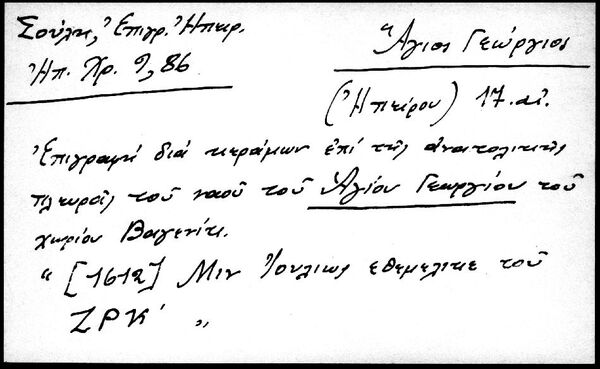 Σούλη, Ἐπιγρ. Ἠπειρ.
Ἠπ. Χρ. 9, 86
Ἅγιος Γεώργιος
(Ἠπείρου) 17. αἰ.
Ἐπιγραφή διά κεράμων ἐπί τῆς ἀνατολικῆς
πλευρᾶς τοῦ ναοῦ τοῦ Ἁγίου Γεωργίου τοῦ
χωρίου Βαγενίτι.
“ [1612] Μιν Ἰουλιως εθεμελικε τοῦ
ΖΡΚ' „